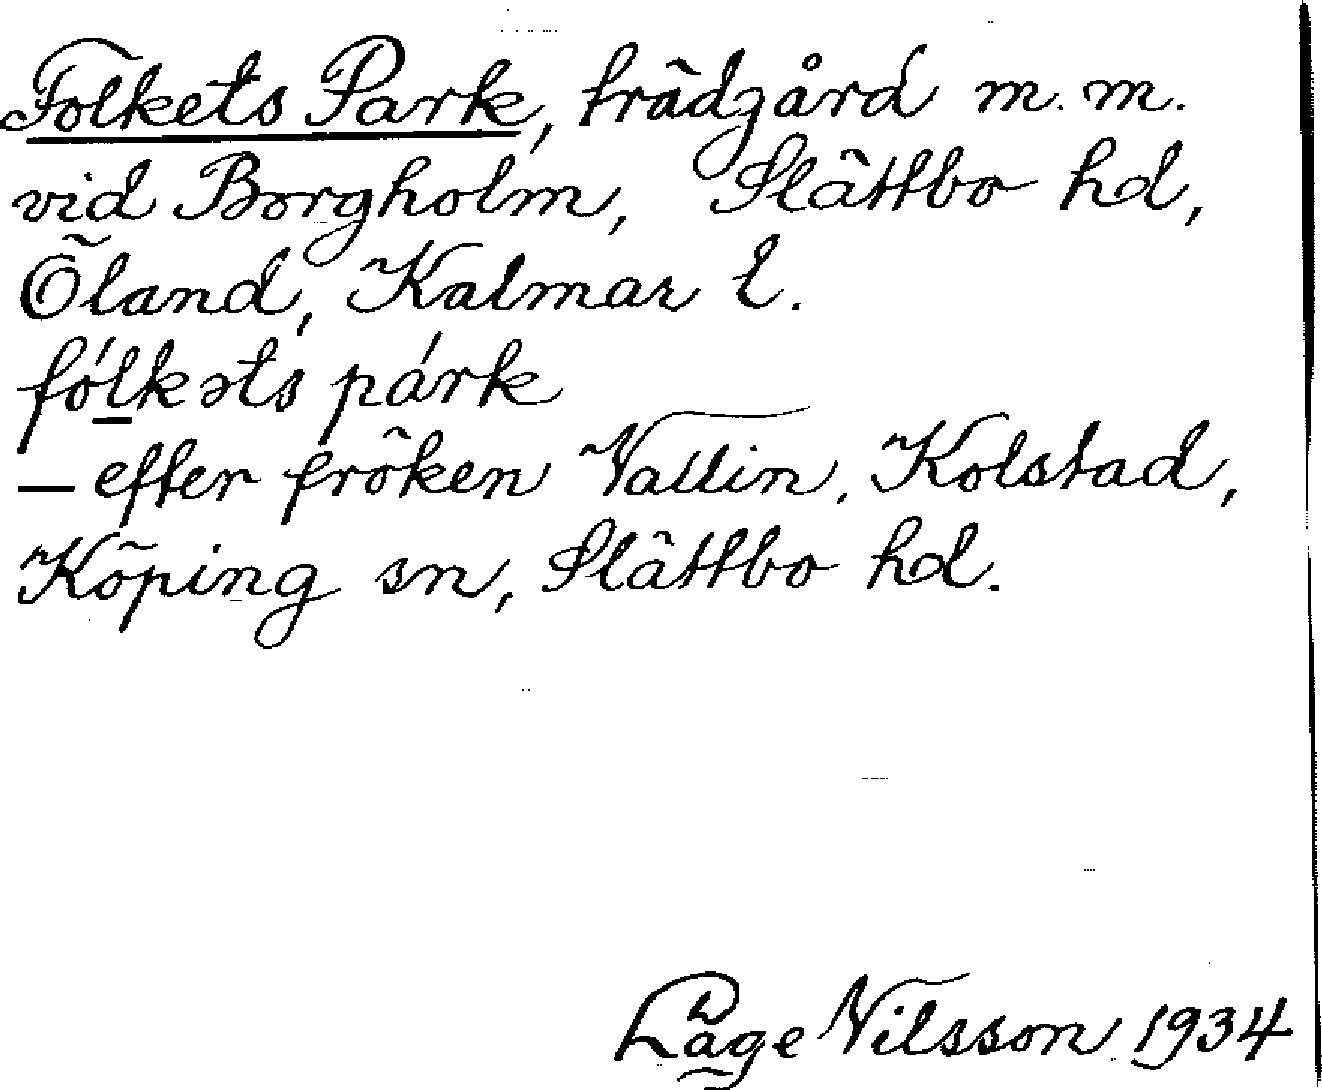 Folkets Park, trädgård m. m.
vid Borgholm, Slättbo hd,
Öland, Kalmar l.
fólkəts párk
— efter fröken Vallin, Kolstad,
Köping sn, Slättbo hd.
Låge Nilsson 1934